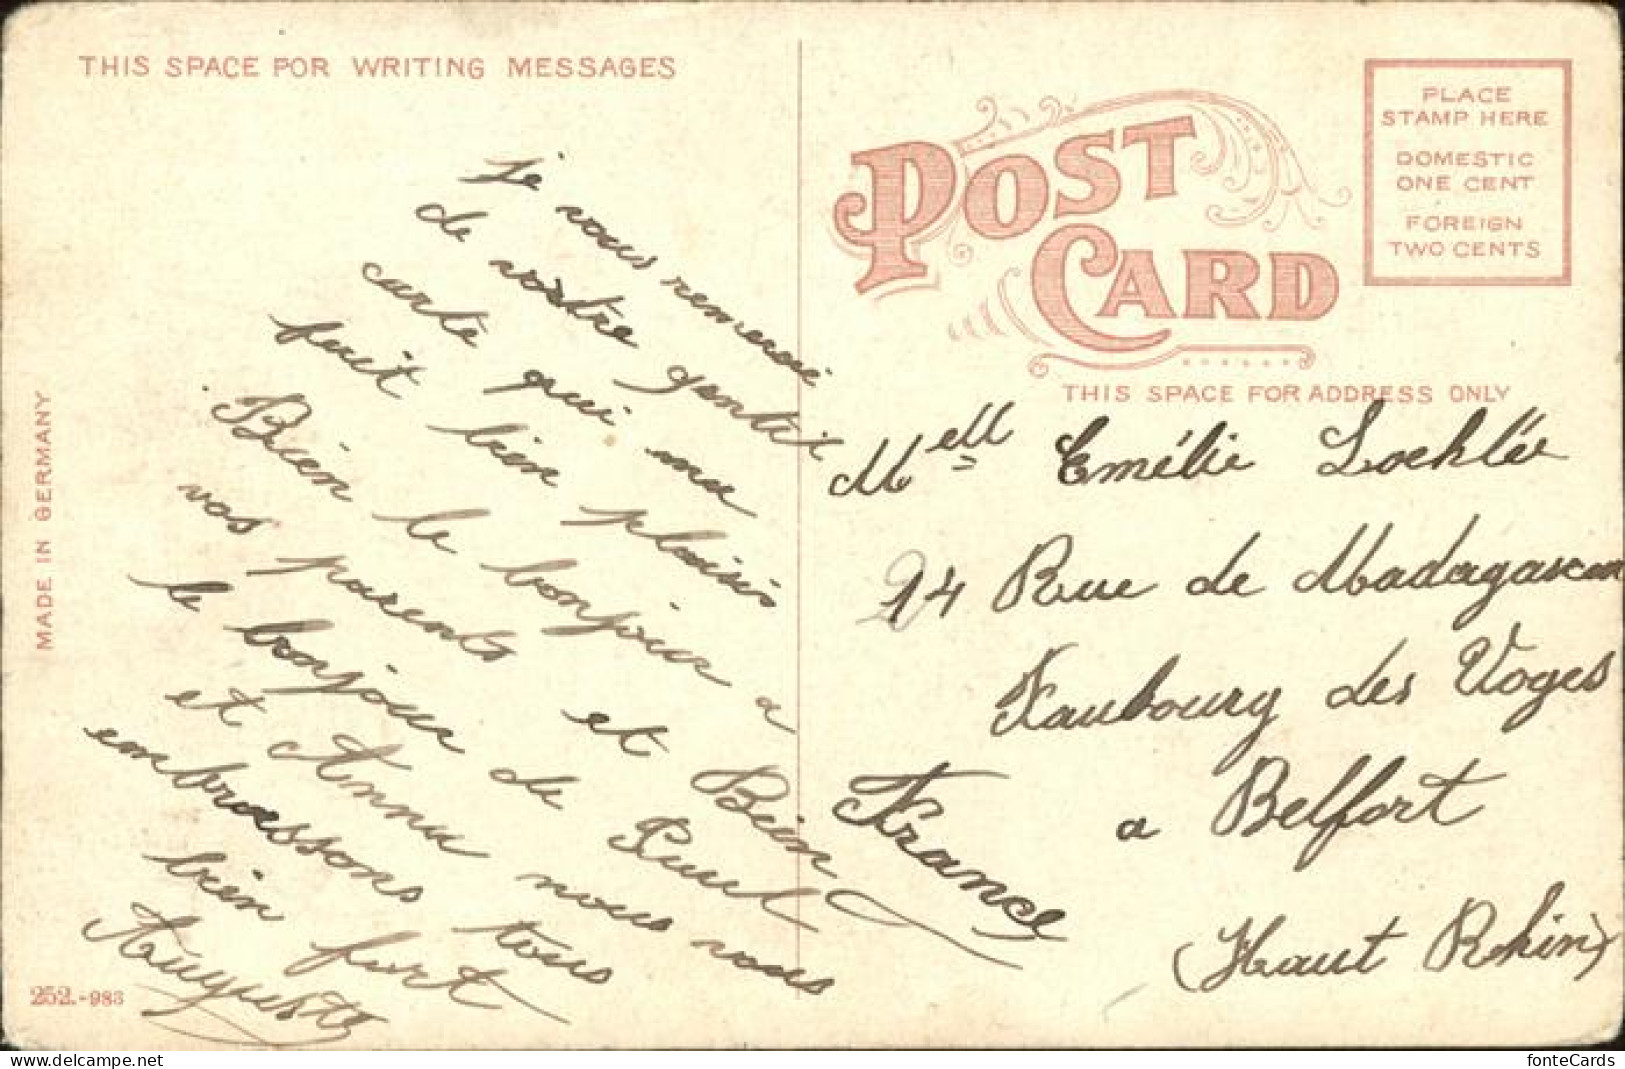 THIS SPACE FOR WRITING MESSAGES
je vous remercie
de vostre gentil
carte qui ma
fait bien plaisir
Bien le bonjour a
vos parents et Bien
le bonjour de Paul
et Anna nous vous
embrassons tous
bien fort
Auguste
MADE IN GERMANY
252.-983
POST CARD
PLACE
STAMP HERE
DOMESTIC
ONE CENT
FOREIGN
TWO CENTS
THIS SPACE FOR ADDRESS ONLY
Mell Emélie Lochlée
14 Rue de Madagascar
Faubourg des Voges
a Belfort
France
(Haut Rhin)
fonteCards